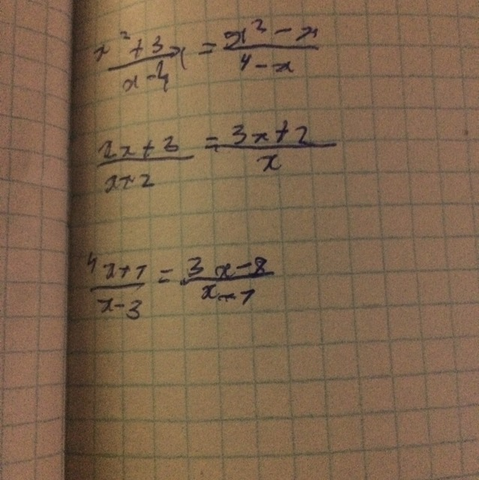 x²+3x/x-4 = x²-x/4-x
2x+3/x+2 = 3x+2/x
4x+1/x-3 = 3x-8/x-1